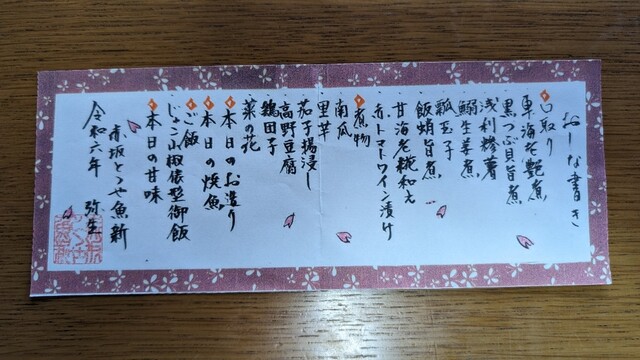 おしな書き
口取り
車海老艶煮
黒つぶ貝旨煮
浅利糝薯
鰯生姜煮
瓢玉子
飯蛸旨煮
甘海老糀和え
赤トマトワイン漬け
煮物
南瓜
里芋
茄子揚浸し
高野豆腐
鶏団子
菜の花
本日のお造り
本日の焼魚
ご飯
じゃこ山椒俵型御飯
本日の甘味
赤坂とゝや魚新
令和六年 弥生